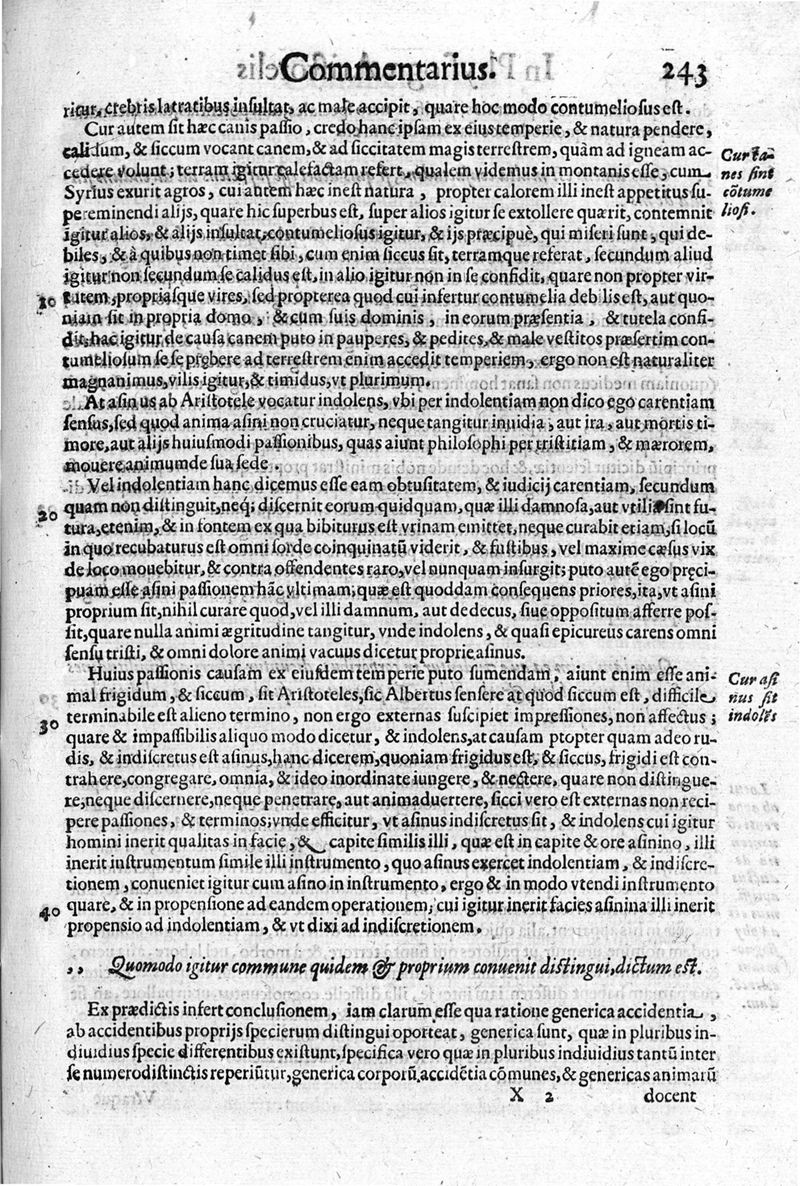 Commentarius. 243
ritur, crebris latratibus insultat, ac male accipit, quare hoc modo contumeliosus est.
Cur autem sit hæc canis passio, credo hanc ipsam ex eius temperie, & natura pendere,
calidum, & siccum vocant canem, & ad siccitatem magis terrestrem, quàm ad igneam ac-
cedere volunt; terram igitur calefactam refert, qualem videmus in montanis esse, cum
Syrius exurit agros, cui autem hæc inest natura, propter calorem illi inest appetitus su-
pereminendi alijs, quare hic superbus est, super alios igitur se extollere quærit, contemnit
igitur alios, & alijs insultat, contumeliosus igitur, & ijs præcipuè, qui miseri sunt, qui de-
biles, & à quibus non timet sibi, cum enim siccus sit, terramque referat, secundum aliud
igitur non secundum se calidus est, in alio igitur non in se confidit, quare non propter vir-
tutem, propriasque vires, sed propterea quod cui infertur contumelia debilis est, aut quo-
niam sit in propria domo, & cum suis dominis, in eorum præsentia, & tutela confi-
dit, hac igitur de causa canem puto in pauperes, & pedites, & male vestitos præsertim con-
tumeliosum se se præbere ad terrestrem enim accedit temperiem, ergo non est naturaliter
magnanimus, vilis igitur, & timidus, vt plurimum.
At asinus ab Aristotele vocatur indolens, vbi per indolentiam non dico ego carentiam
sensus, sed quod anima asini non cruciatur, neque tangitur inuidia, aut ira, aut mortis ti-
more, aut alijs huiusmodi passionibus, quas aiunt philosophi per tristitiam, & mærorem,
mouere animum de sua sede.
Vel indolentiam hanc dicemus esse eam obtusitatem, & iudicij carentiam, secundum
quam non distinguit, neq; discernit eorum quidquam, quæ illi damnosa, aut vtilia sint fu-
tura, etenim, & in fontem ex qua bibiturus est vrinam emittet, neque curabit etiam, si locū
in quo recubaturus est omni sorde coinquinatū viderit, & fustibus, vel maxime cæsus vix
de loco mouebitur, & contra offendentes raro, vel nunquam insurgit; puto autē ego pręci-
puam esse asini passionem hāc vltimam; quæ est quoddam consequens priores, ita, vt asini
proprium sit, nihil curare quod, vel illi damnum, aut dedecus, siue oppositum afferre pos-
sit, quare nulla animi ægritudine tangitur, vnde indolens, & quasi epicureus carens omni
sensu tristi, & omni dolore animi vacuus dicetur proprie asinus.
Huius passionis causam ex eiusdem temperie puto sumendam, aiunt enim esse ani-
mal frigidum, & siccum, sit Aristoteles, sic Albertus sensere at quod siccum est, difficile
terminabile est alieno termino, non ergo externas suscipiet impressiones, non affectus;
quare & impassibilis aliquo modo dicetur, & indolens, at causam ptopter quam adeo ru-
dis, & indiscretus est asinus, hanc dicerem, quoniam frigidus est, & siccus, frigidi est con-
trahere, congregare, omnia, & ideo inordinate iungere, & nectere, quare non distingue-
re; neque discernere, neque penetrare, aut animaduertere, sicci vero est externas non reci-
pere passiones, & terminos; vnde efficitur, vt asinus indiscretus sit, & indolens cui igitur
homini inerit qualitas in facie, & capite similis illi, quæ est in capite & ore asinino, illi
inerit instrumentum simile illi instrumento, quo asinus exercet indolentiam, & indiscre-
tionem, conueniet igitur cum asino in instrumento, ergo & in modo vtendi instrumento
quare, & in propensione ad eandem operationem, cui igitur inerit facies asinina illi inerit
propensio ad indolentiam, & vt dixi ad indiscretionem.
,, Quomodo igitur commune quidem & proprium conuenit distingui, dictum est.
Ex prædictis infert conclusionem, iam clarum esse qua ratione generica accidentia,
ab accidentibus proprijs specierum distingui oporteat, generica sunt, quæ in pluribus in-
diuidius specie differentibus existunt, specifica vero quæ in pluribus indiuidius tantū inter
se numero distinctis reperiūtur, generica corporū accidētia cōmunes, & genericas animarū
X 2 docent
Cur ca-
nes sint
cōtume
liosi.
Cur asi
nus sit
indolēs
10
20
30
40